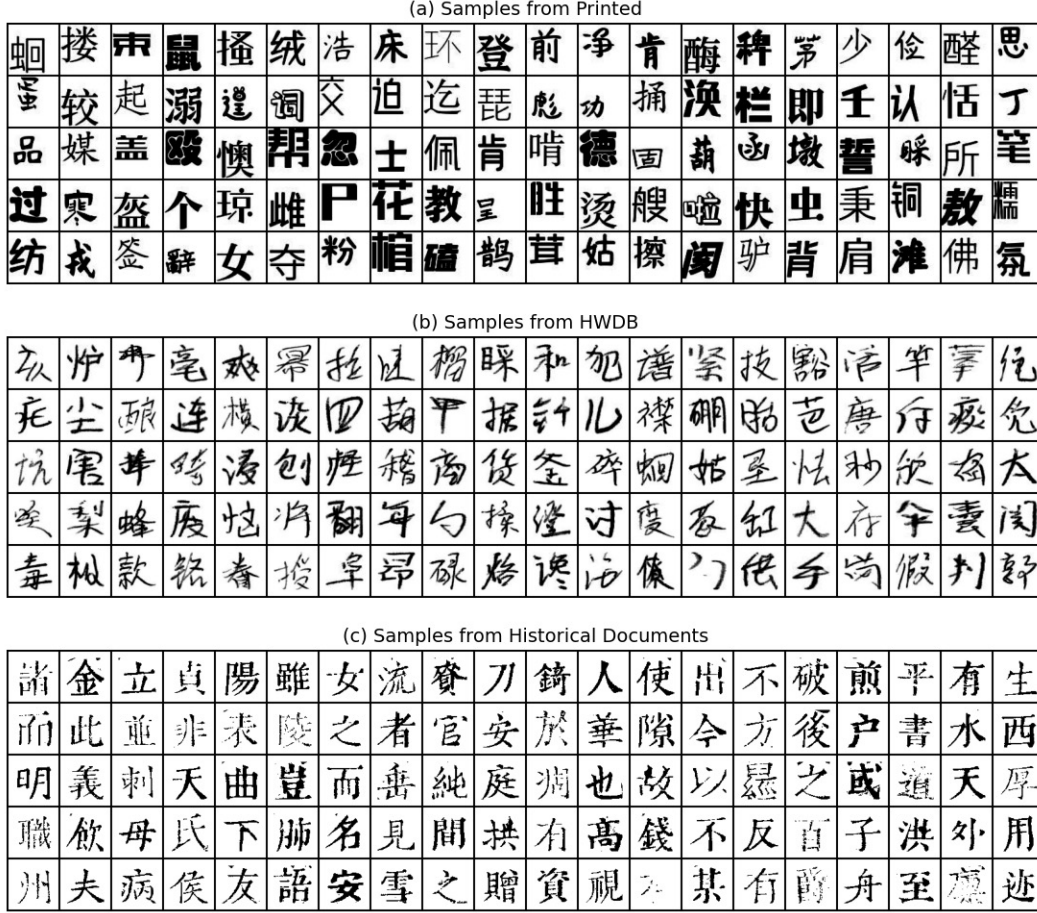 (a) Samples from Printed
蛔 搂 束 鼠 搔 绒 浩 床 环 登 前 净 肯 酶 稗 茅 少 俭 醛 思
蛋 较 起 溺 逞 词 交 迫 迄 琵 彪 功 捅 涣 栏 即 壬 认 恬 丁
品 媒 盖 殴 懊 帮 忽 士 佩 肯 啃 德 固 葫 函 墩 誓 睬 所 笔
过 寒 盔 个 琼 雌 尸 花 教 呈 胜 烫 艘 啦 快 虫 秉 铜 敖 糯
纺 戎 签 辞 女 夺 粉 棺 磕 鹊 茸 姑 擦 阂 驴 背 肩 滩 佛 氛
(b) Samples from HWDB
亥 炉 毫 爽 幂 拉 榴 睬 和 犯 谱 紧 技 豁 活 竿 摹
疟 尘 酿 连 横 谈 四 葫 甲 据 针 儿 襟 硼 胎 芭 唐
坑 害 畸 浸 刨 怪 稽 商 货 釜 碎 蛔 姑 圣 怯 秒 太
梨 蜂 废 恼 翻 每 勺 揉 澄 讨 度 缸 大 存 伞 囊 闺
毒 枫 款 铭 眷 授 阜 昂 碌 烙 谗 海 供 手 岗 假 判 郭
(c) Samples from Historical Documents
諸 金 立 貞 陽 雖 女 流 刀 錡 人 使 出 不 破 煎 平 有 生
而 此 並 非 表 陵 之 者 官 安 於 華 隙 今 方 後 户 書 水 西
明 義 刺 天 曲 豈 而 純 庭 也 故 以 之 或 道 天 厚
職 飲 母 氏 下 肺 名 見 間 拱 有 高 錢 不 反 百 子 洪 外 用
州 夫 病 侯 友 語 安 雪 之 贈 資 視 某 有 爵 舟 至 迹